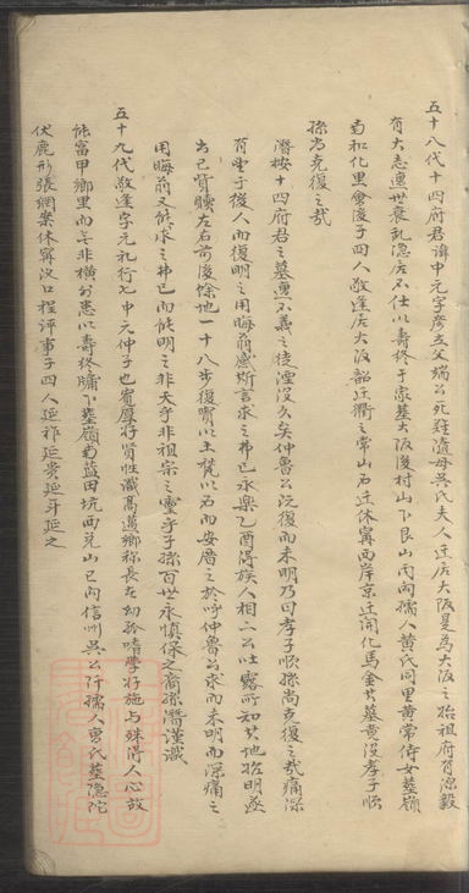 五十八代十四府君諱中元字彥立父端公死難遺母吳氏夫人迁居大阪是為大阪之始祖府君深毅
有大志遭世衰乱隐居不仕以壽终于家墓大阪後村山下艮山丙向孺人黄氏同里黄常侍女墓嶺
南和化里會後子四人敬逢居大阪韶迁衢之常山石迁休寧西岸京迁開化馬金其墓竟没孝子順
孫当克復之哉
潛按十四府君之墓遭不義之徒湮没久矣仲魯公况復而未明乃曰孝子順孫尚克復之哉痛深
有望于後人而復明之用晦前感斯言求之弗已永樂乙酉得族人相二公吐露所知其地始明遂
出己貲贖左右前後餘地一十八步復實以土甃以石而安厝之於呼仲魯公求而未明而深痛之
用晦前又能求之弗已而能明之非天乎非祖宗之靈乎子孫百世永慎保之裔孫潛謹識
五十九代敬逢字元礼行七中元仲子也寬厚好賢性識高邁鄉称長者幼孤嗜學好施与殊得人心故
能富甲鄉里而無非横分患以壽终牗下墓嶺南蓝田坑西兑山巳向信州吳公阡孺人曽氏墓隐陀
伏鹿形張網案休寧汊口程評事子四人延祚延貴延斗延之